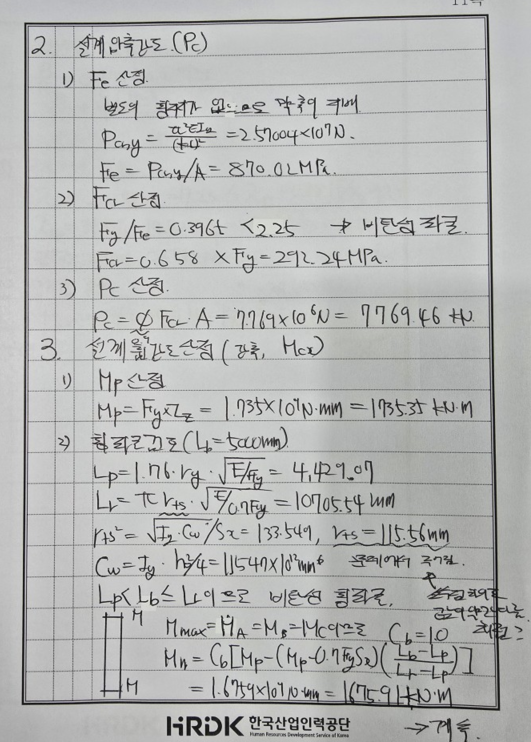 2. 설계압축강도 (Pc)
1) Fe 산정
별도의 횡지지가 없으므로 약축이 지배
Pcr,y = π²EIy/(KL)² = 2.57004×10⁷N.
Fe = Pcr,y/A = 870.02MPa.
2) Fcr 산정
Fy/Fe = 0.3965 < 2.25 → 비탄성 좌굴.
Fcr = 0.658 × Fy = 292.24MPa.
3) Pc 산정
Pc = ∅ Fcr·A = 7.769×10⁶N = 7769.46 kN.
3. 설계휨강도산정 (강축, Mcx)
1) Mp 산정
Mp = Fy×Zx = 1.735×10⁹N·mm = 1735.35 kN·m
2) 횡좌굴강도 (Lb=5000mm)
Lp = 1.76·ry·√E/Fy = 4,429.07
Lr = π rts·√E/0.7Fy = 10705.54 mm
rts² = √Iy·Cw/Sx = 133.549, rts = 115.56mm
Cw = Iy·h²/4 = 1.1547×10¹³mm⁶ 문제에서 주어짐.
Lp < Lb ≤ Lr 이므로 비탄성 횡좌굴.
M Mmax = MA = MB = MC 이므로 Cb = 1.0
Mn = Cb[Mp-(Mp-0.7FySx)(Lb-Lp/Lr-Lp)]
M = 1.6759×10⁹N·mm = 1675.91kN·m
HRDK 한국산업인력공단
Human Resources Development Service of Korea
→ 계속.